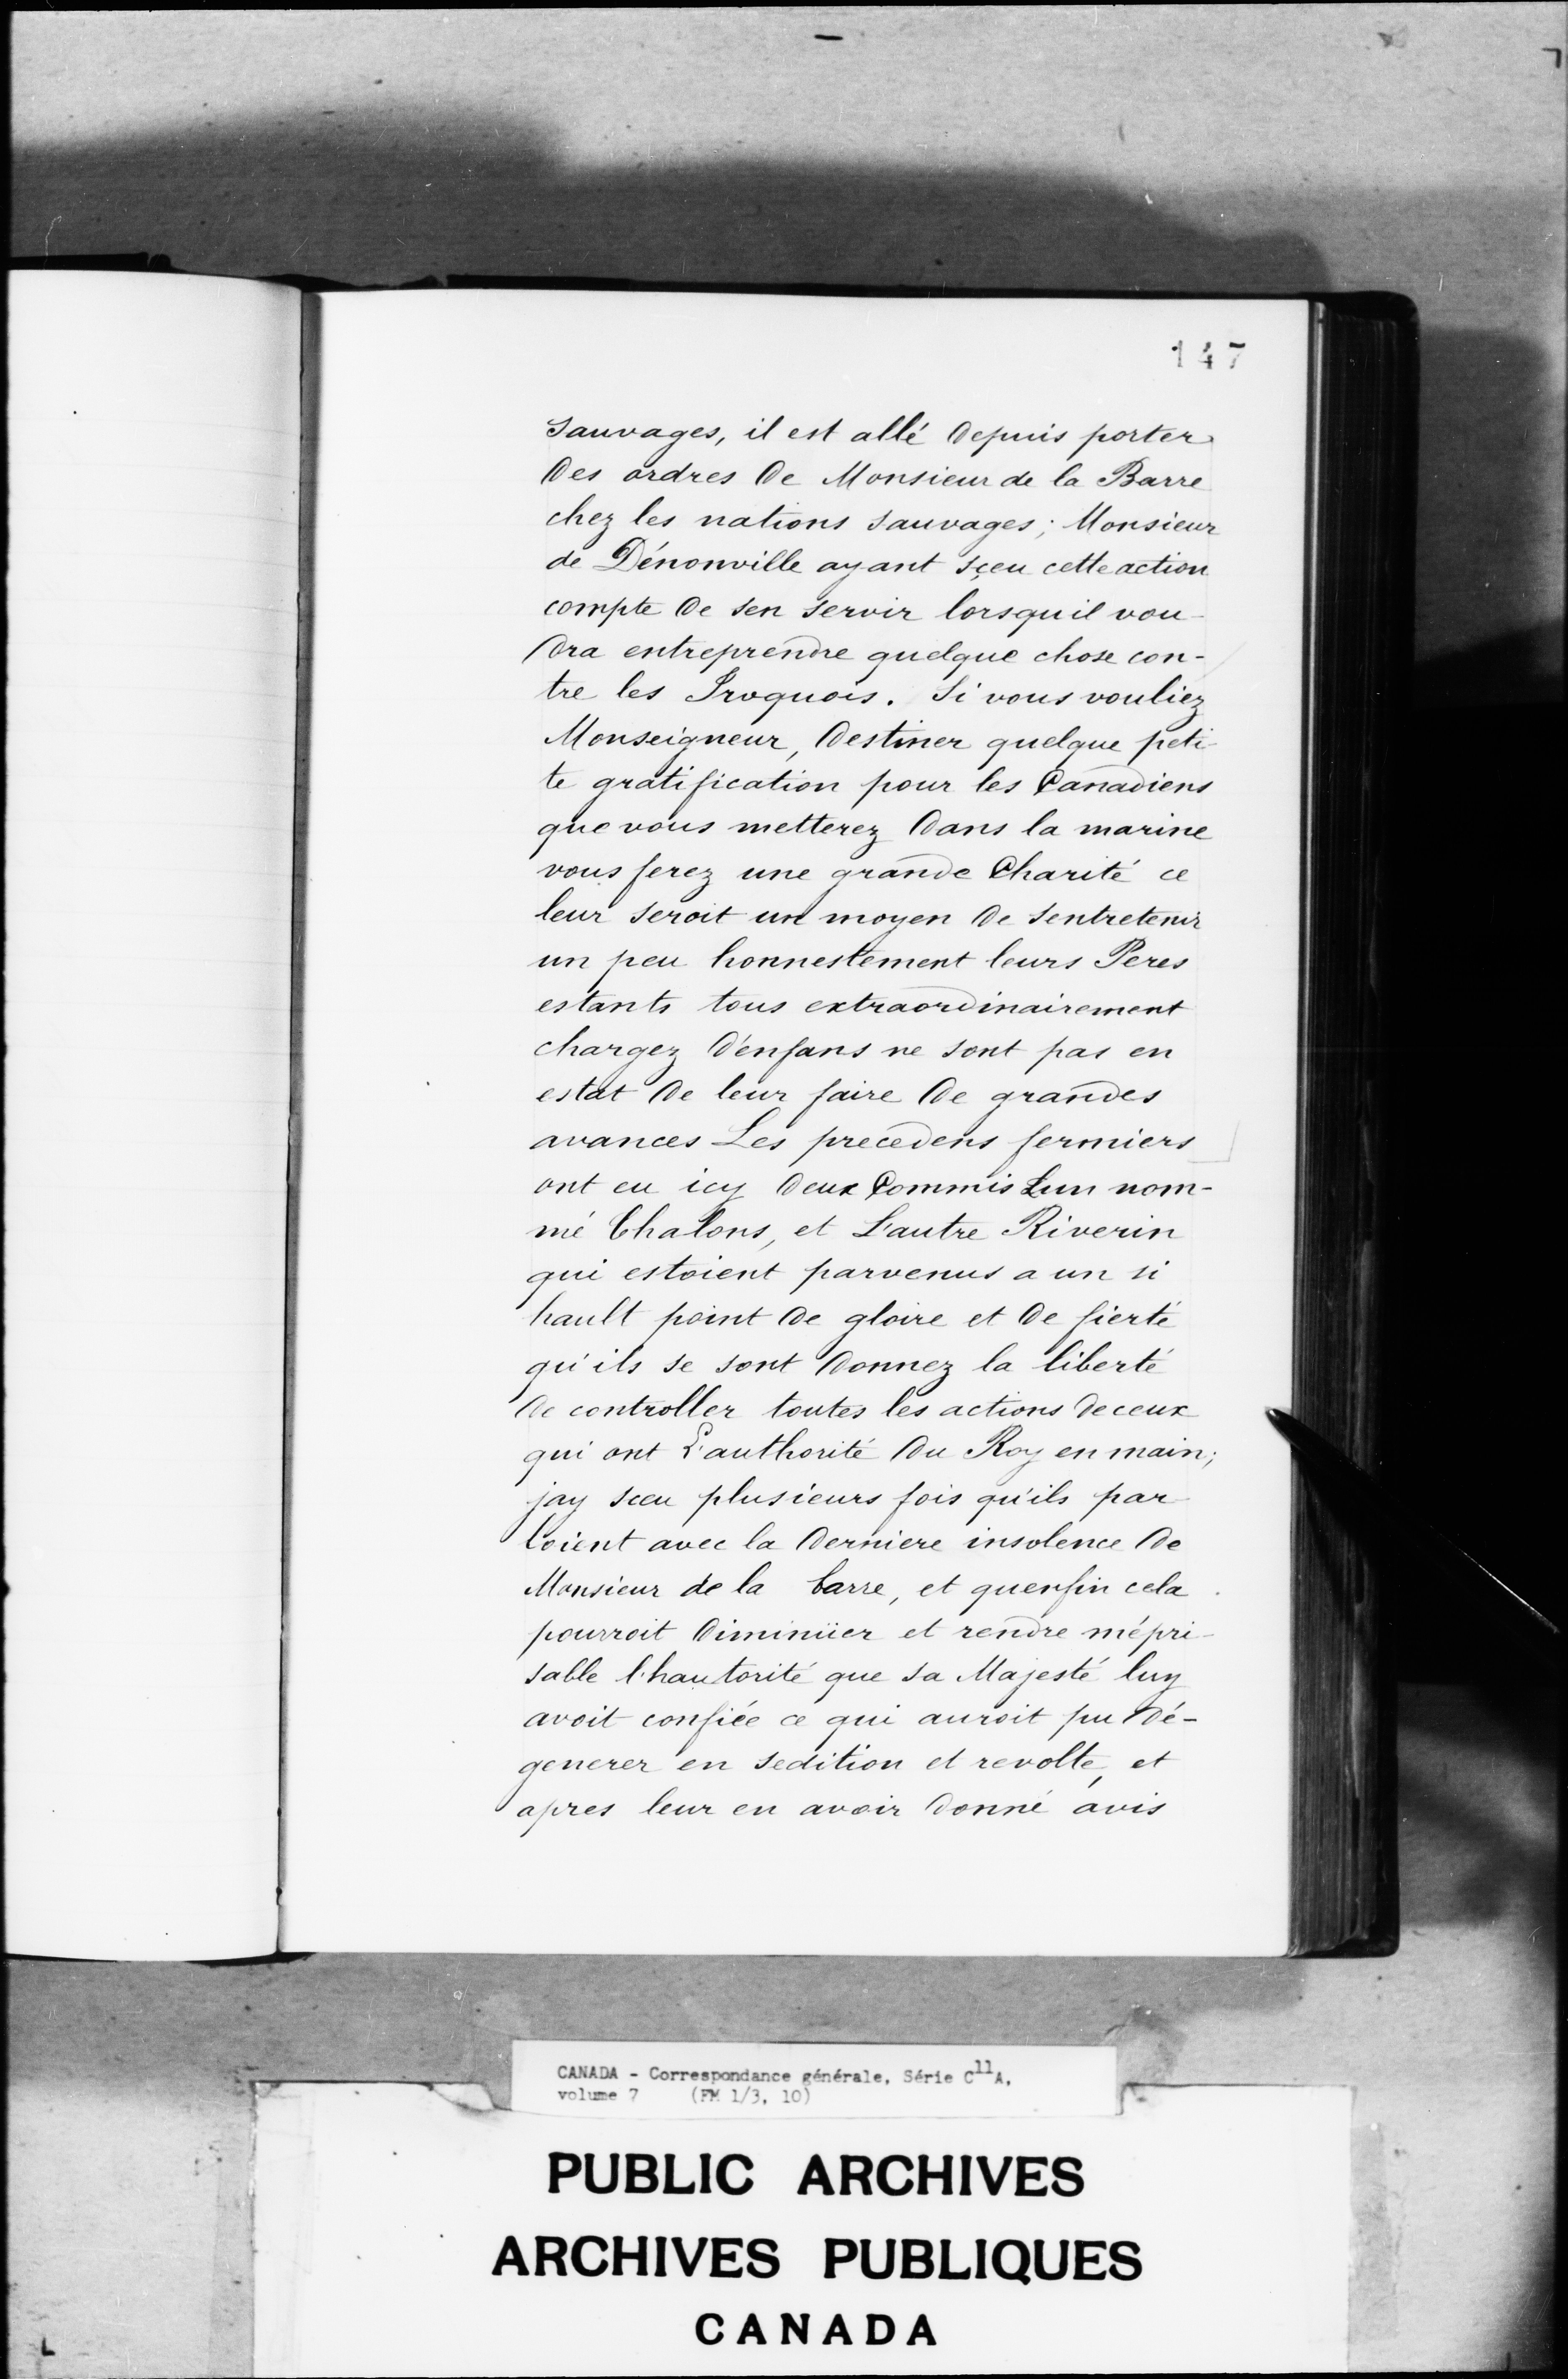 147
sauvages, il est allé depuis porter
des ordres de Monsieur de la Barre
chez les nations sauvages; Monsieur
de Dénonville ayant sçeu cette action
compte de sen servir lorsquil vou-
dra entreprendre quelque chose con-
tre les Iroquois. Si vous vouliez
Monseigneur, destiner quelque peti-
te gratification pour les Canadiens
que vous metterez dans la marine
vous ferez une grande Charité ce
leur seroit un moyen de sentretenir
un peu honnestement leurs Peres
estants tous extraordinairement
chargez d'enfans ne sont pas en
estat de leur faire de grandes
avances Les precedens fermiers
ont eu icy deux Commis Lun nom-
mé Chalons, et L'autre Riverin
qui estoient parvenus a un si
hault point de gloire et de fierté
qu'ils se sont donnez la liberté
de controller toutes les actions de ceux
qui ont L'authorité du Roy en main;
jay sceu plusieurs fois qu'ils par-
loient avec la derniere insolence de
Monsieur de la barre, et quenfin cela
pourroit diminüer et rendre mépri-
sable l'hautorité que sa Majesté luy
avoit confiée ce qui auroit pu dé-
generer en sedition et revolte, et
apres leur en avoir donné avis
CANADA - Correspondance générale, Série C11A,
volume 7 (FM 1/3, 10)
PUBLIC ARCHIVES
ARCHIVES PUBLIQUES
CANADA